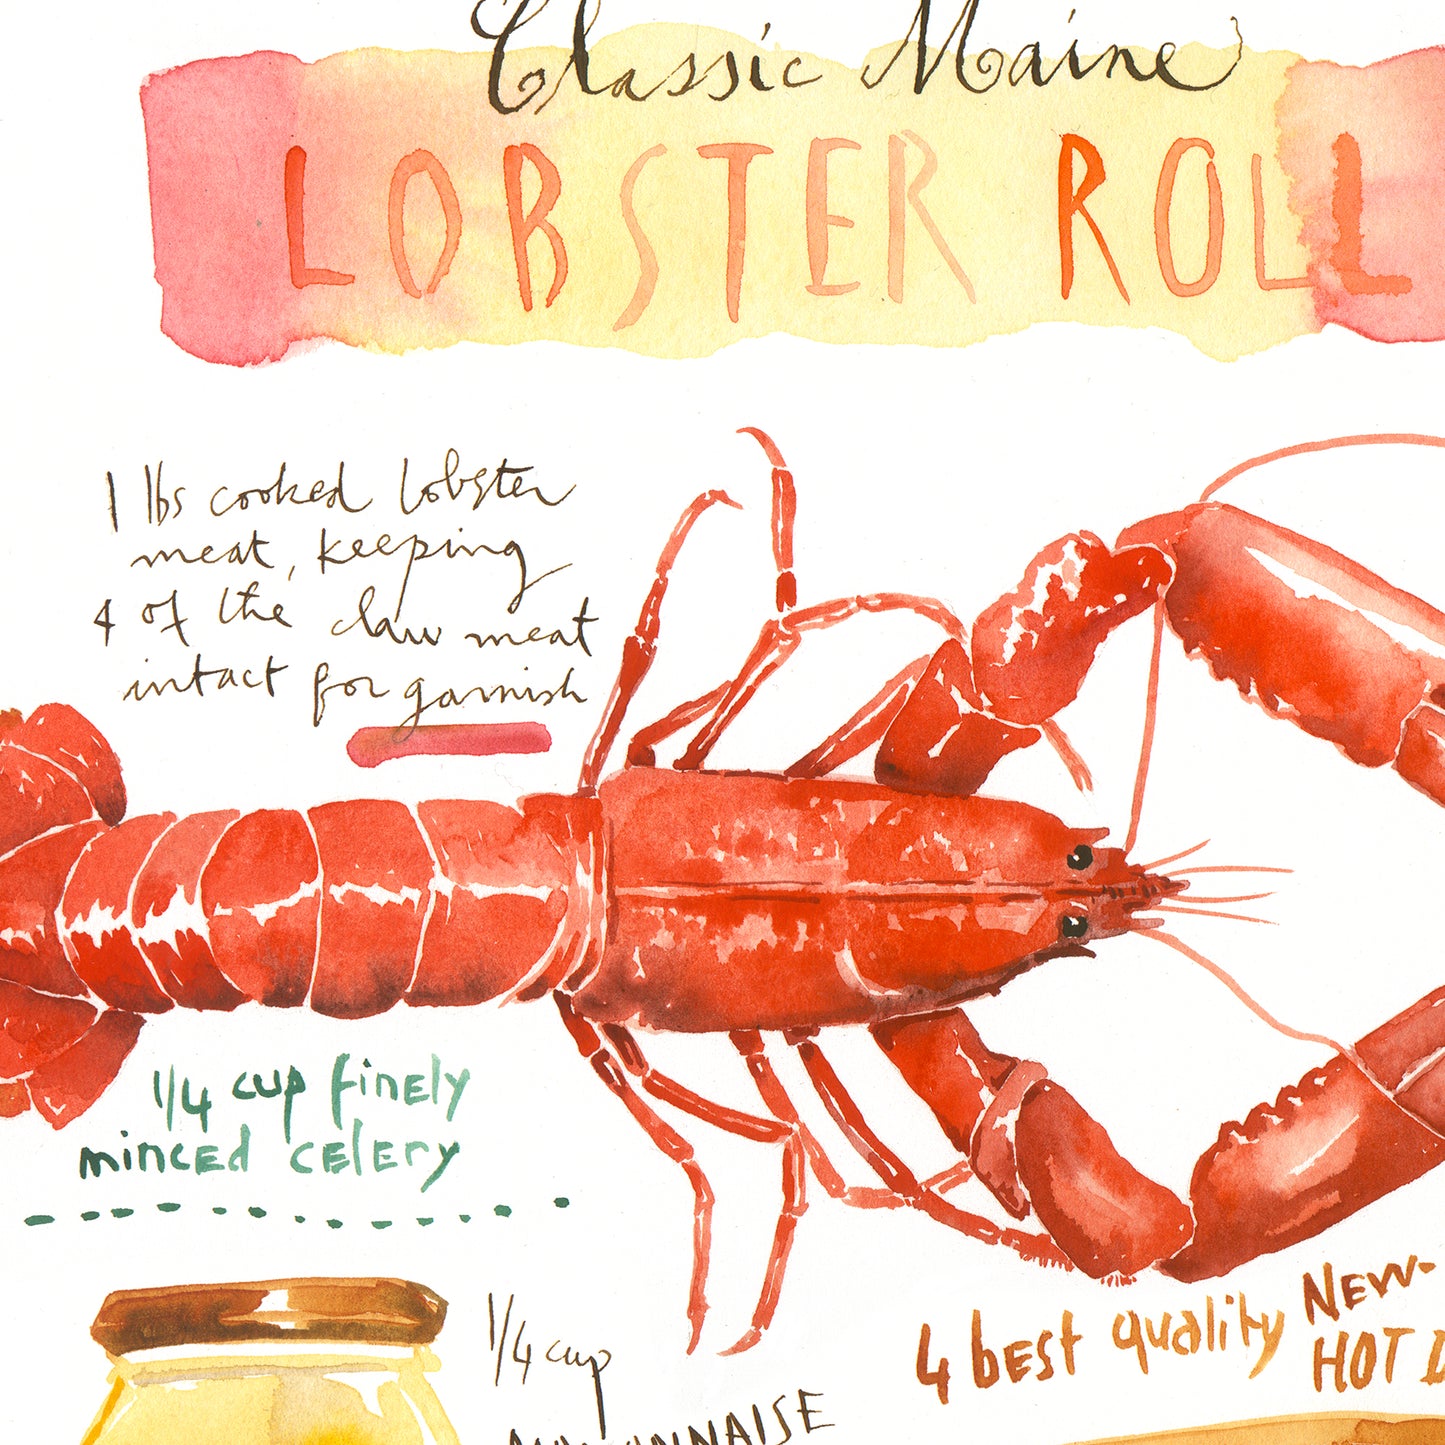 Classic Maine
LOBSTER ROLL
1 lbs cooked lobster
meat, keeping
4 of the claw meat
intact for garnish
1/4 cup finely
minced celery
1/4 cup
4 best quality NEW-
HOT